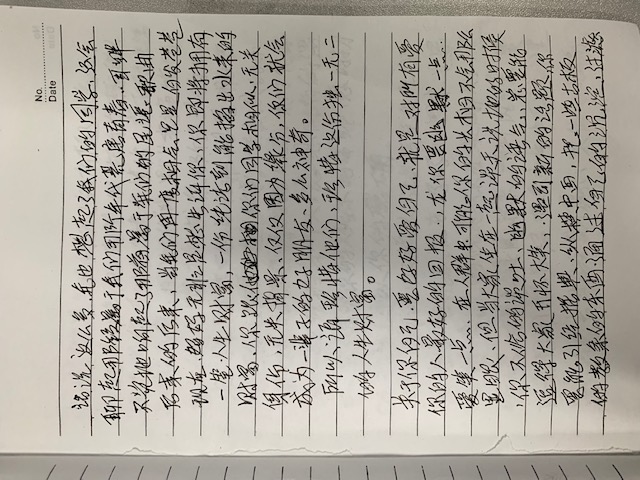 No.
Date
话说这么多,我也想起了我们的同学,还会
聊起那段属于我们那个年代莫属青春,耳畔
不觉地响起了那首属于我们的民谣歌曲
后来的后来,当我们再度相会总是白发苍苍
现在,妈妈无非是想告诉你,你即将拥有
一笔人生财富,一份纯洁到能掐出水来的
财富,你跟他 你们同学相似,无关
身份,无关背景,仅仅因为缘分,你们就会
成为一辈子的好朋友,多么神奇。
所以请珍惜他们,珍惜这份独一无二
的人生财富。
关于你自己,要好好爱自己,就是对所有爱
你的人最好的回报..,友你要幽默一点...
爱笑一点... 在人群中可能你的长相不会那么
显眼,但当大家坐在一起谈天说地的时候
,你不俗的谈吐、幽默的语言,总要能
逗得大家开怀大笑,遇到新的话题,你
要能引经据典、纵横中西,把一些古板
的教条的东西通过自己的沉淀,过滤